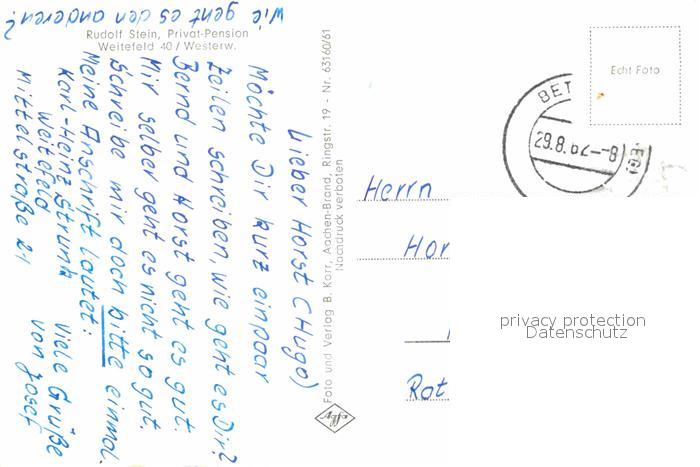 Rudolf Stein, Privat-Pension
Weitefeld 40 / Westerw.
Lieber Horst (Hugo)
Möchte Dir kurz ein paar
Zeilen schreiben, wie geht es Dir?
Bernd und Horst geht es gut.
Mir selber geht es nicht so gut.
Schreibe mir doch bitte einmal.
Meine Anschrift lautet:
Karl-Heinz Strunk
Weitefeld
Mittelstraße 21
Viele Grüße
von Josef
Wie geht es den anderen?
Foto und Verlag B. Karr, Aachen-Brand, Ringstr. 19 - Nr. 63160/61
Nachdruck verboten
Agfa
Echt Foto
BET
29.8.62--8
Herrn
Hor
Rot
privacy protection
Datenschutz